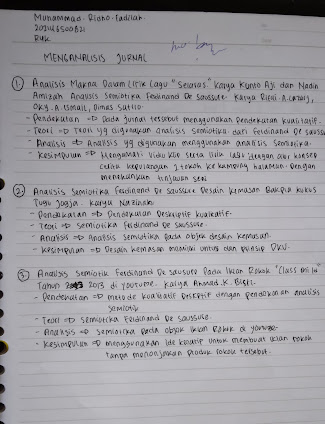 Muhammad Ridho Fadilah
202146500821
R4K
MENGANALISIS JURNAL
1. Analisis Makna Dalam Lirik Lagu "Selaras" Karya Kunto Aji dan Nadin
Amizah Analisis Semiotika Ferdinand De Saussure. Karya
Oky. A. Ismail, Dimas Satrio.
- Pendekatan => Pada jurnal tersebut menggunakan Pendekatan kualitatif.
- Teori => Teori yg digunakan analisis Semiotika dari Ferdinand De Sauss
- Analisis => Analisis yg digunakan menggunakan analisis Semiotika.
- Kesimpulan => Mengamati Vidio klip serta lirik lagu dengan alur konsep
cerita kepulangan 2 tokoh ke kampung halaman. Dengan
menekankan tinjauan seni
2. Analisis Semiotika Ferdinand De Saussure Desain Kemasan Bakpia kukus
Tugu Jogja. Karya
- Pendekatan => Pendekatan Deskriptif kualitatif.
- Teori => Semiotika Ferdinand De Saussure.
- Analisis => Analisis Semiotika pada objek desain kemasan.
- Kesimpulan => Desain kemasan memiliki unsur dan prinsip DKV.
3. Analisis Semiotik Ferdinand De Saussure Pada Iklan Rokok "Class Mild"
Tahun 2013 di youtube. Karya Ahmad. K.
- Pendekatan => metode kualitatif Deskriptif dengan pendekatan analisis
Semiotik
- Teori => Semiotika Ferdinand De Saussure.
- Analisis => Semiotika pada objek Iklan Rokok di youtube.
- Kesimpulan => menggunakan Ide kreatif untuk membuat iklan rokok
tanpa menonjolkan produk rokok tersebut.